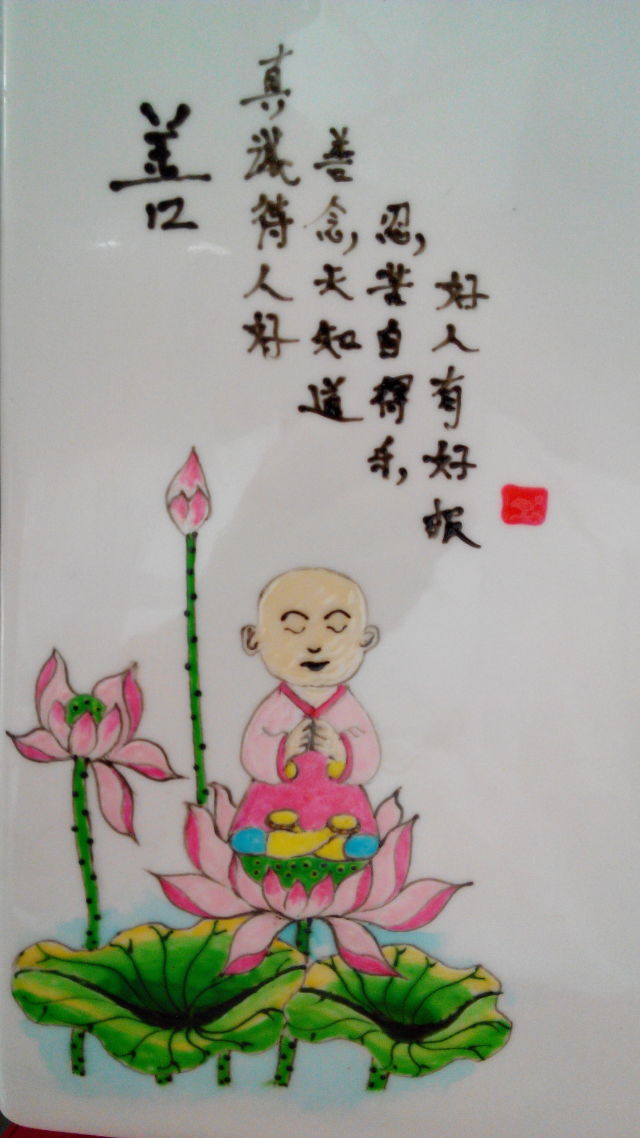 善
真诚待人好
善念,天知道
忍,苦自得乐,
好人有好报